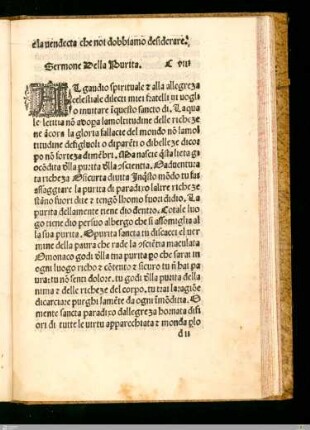 ela uendecta che noi dobbiamo desiderare.
Sermone Della Purita. C vii
AL gaudio spirituale & alla allegreza
celestiale dilecti miei fratelli ui uoglio
o inuitare i questo sancto di. La qua
le letitia nō
cora la gloria fallacie del mondo nō lamol
titudine de figliuoli o di parēti o di belleze di cor
po nō forteza di mēbri. Ma nasce
condita della purita della
richeza & sicurta diuita In q̄sto mō tu fai
assaggiare la purita di paradiso laltre richeze
stāno fuori di te & tengō lhomo fuori di dio. La
purita della mente tiene dio dentro. Cotale luo
go tiene dio per suo albergo che si assomiglia al
la sua purita. O purita sancta tu discacci el uer
mine della paura che rade la cōsciētia maculata
O monaco godi della tua purita po che sarai in
ogni luogo richo & cōtento & sicuro tu nō hai pa
ura: tu nō senti dolore. tu godi della purita della
nima & delle richeze del corpo. tu trai la ragiōe
di carciare purghi la mēte da ogni imōditia. O
mente sancta paradiso dallegreza hornata di fi
ori di tutte le uirtu apparechiata & monda
d ii